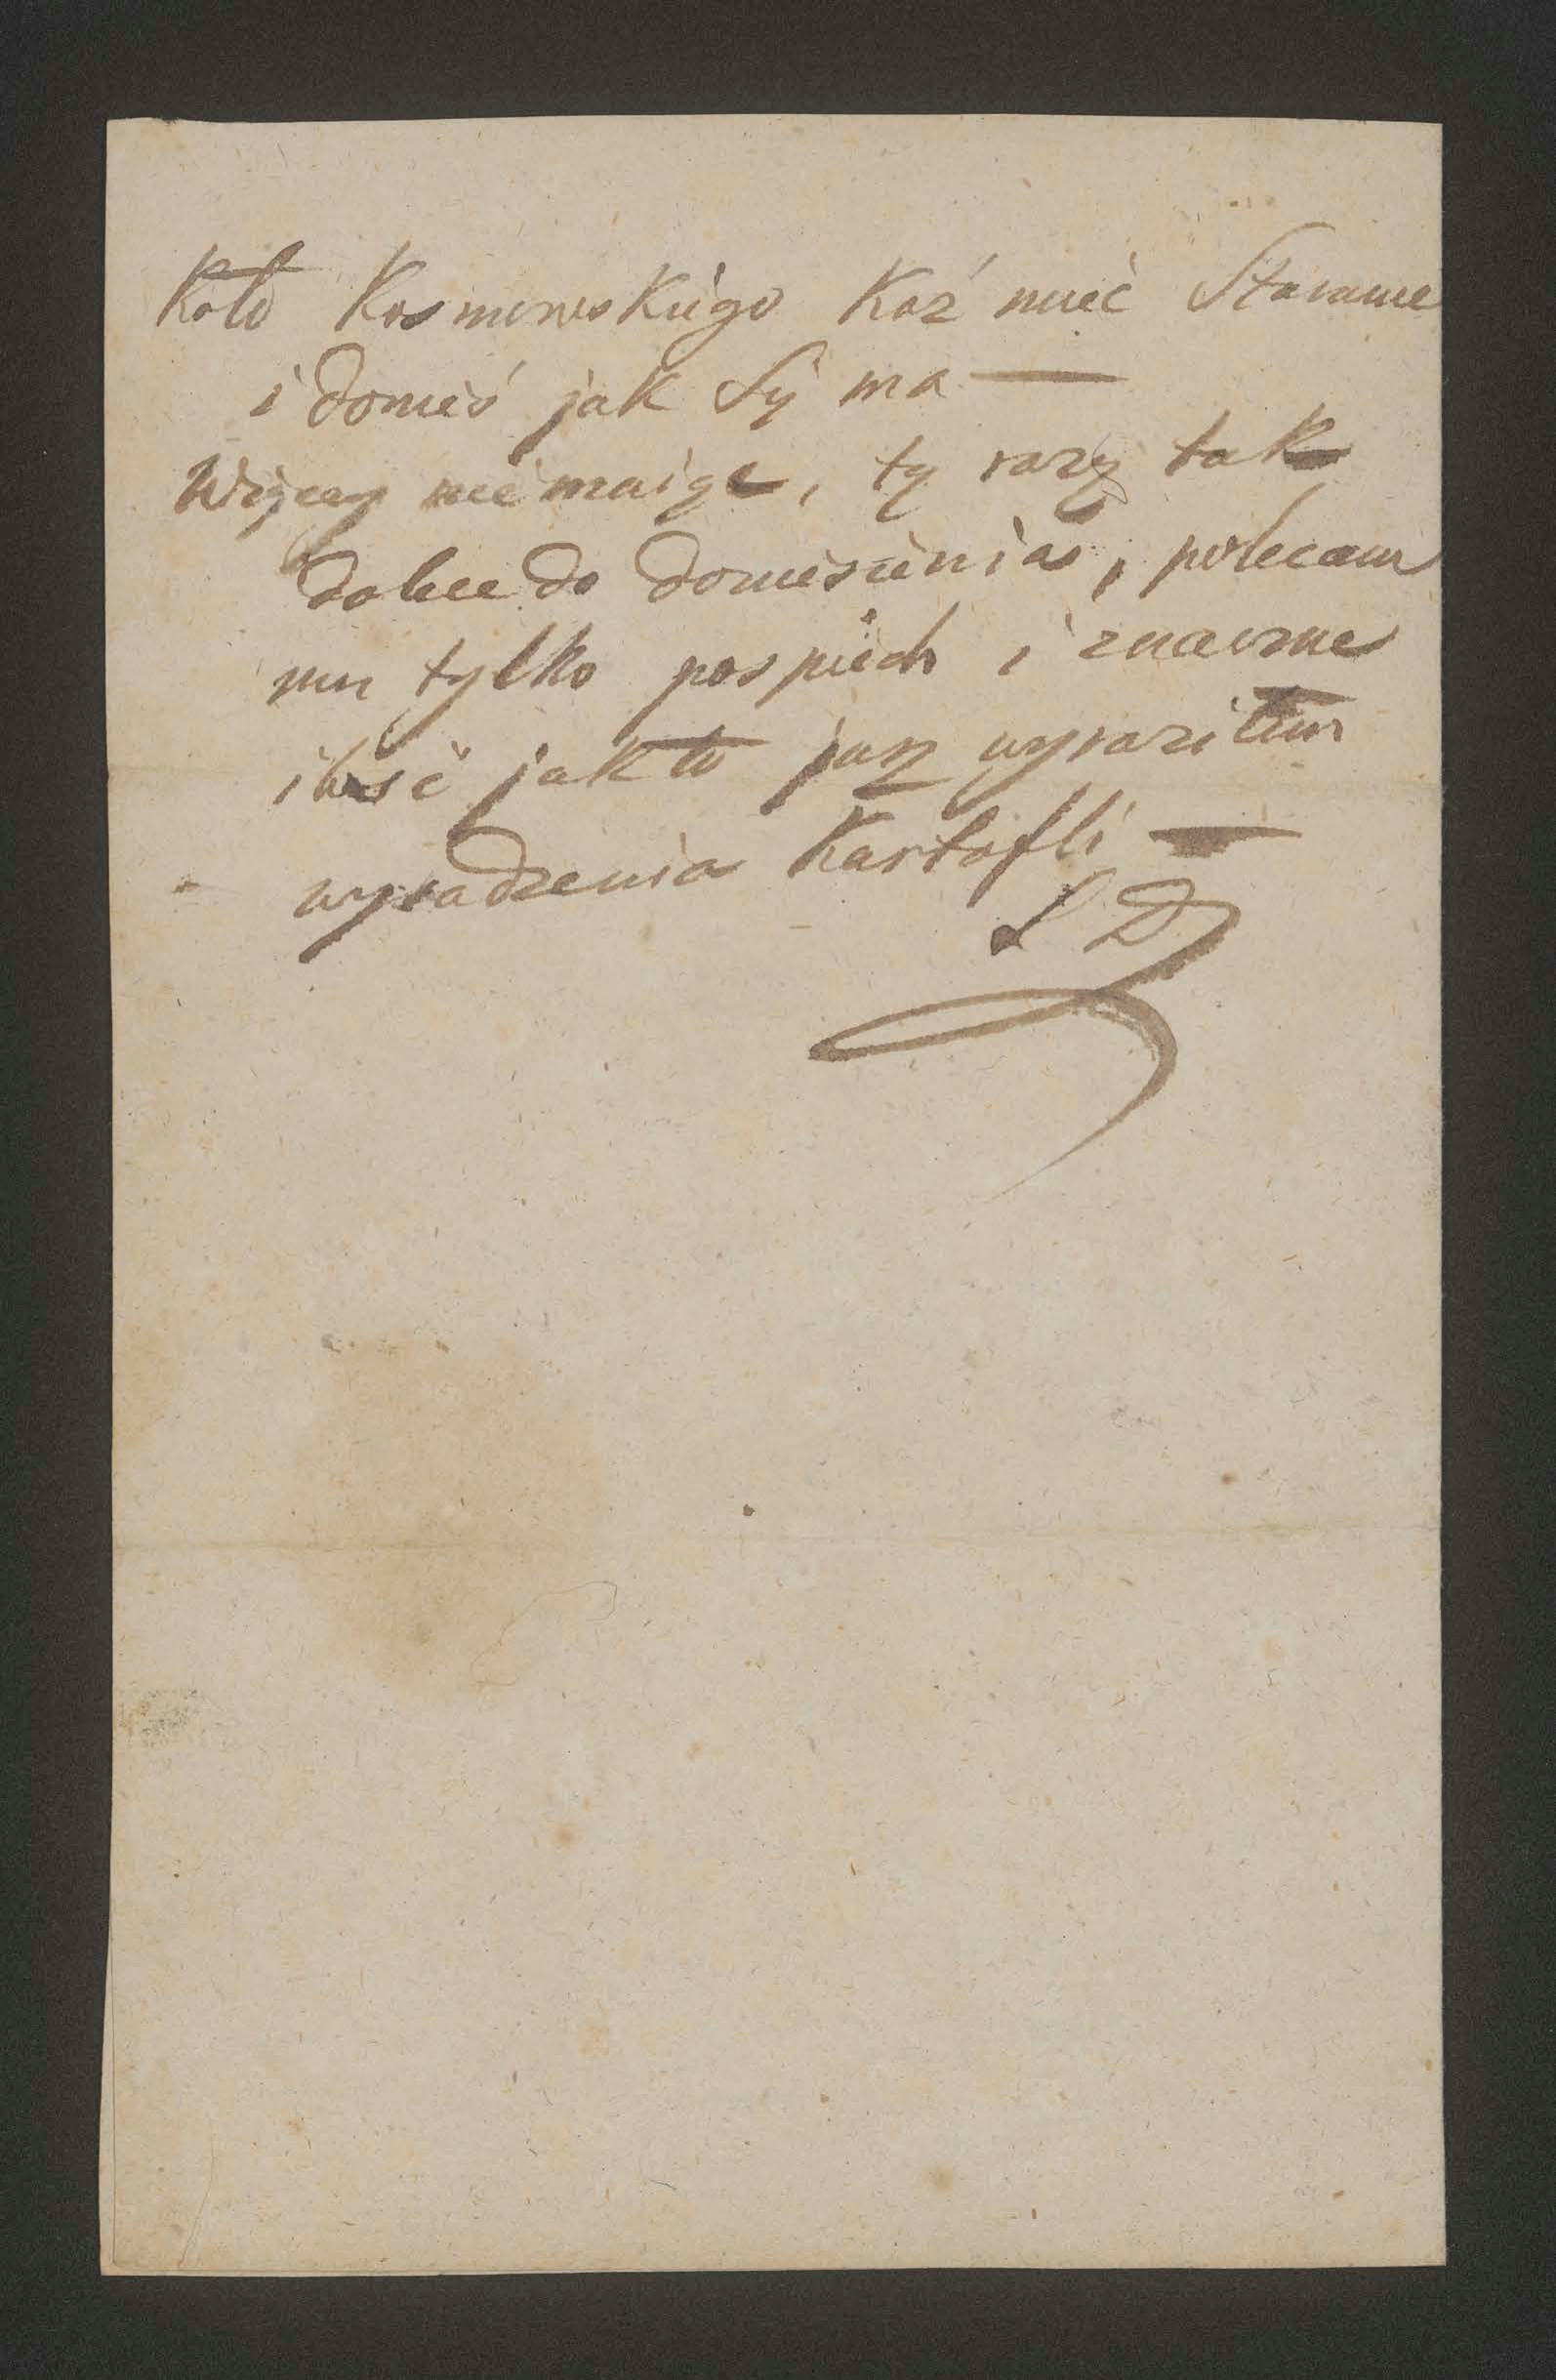 Koło Kosmowskiego Każ mieć Staranie
i donieś jak się ma —
Więcej nie maiąc, tą razą tak
dalece do doniesienia, polecam
mu tylko pospiech i znaczne
ilość jak to już wyraziłem
wysadzenia Kartofli —
L D